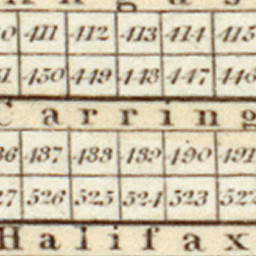 411 412 413 414 415
450 449 448 447 446
Carring
487 488 489 490 491
526 525 524 523 522
Halifax